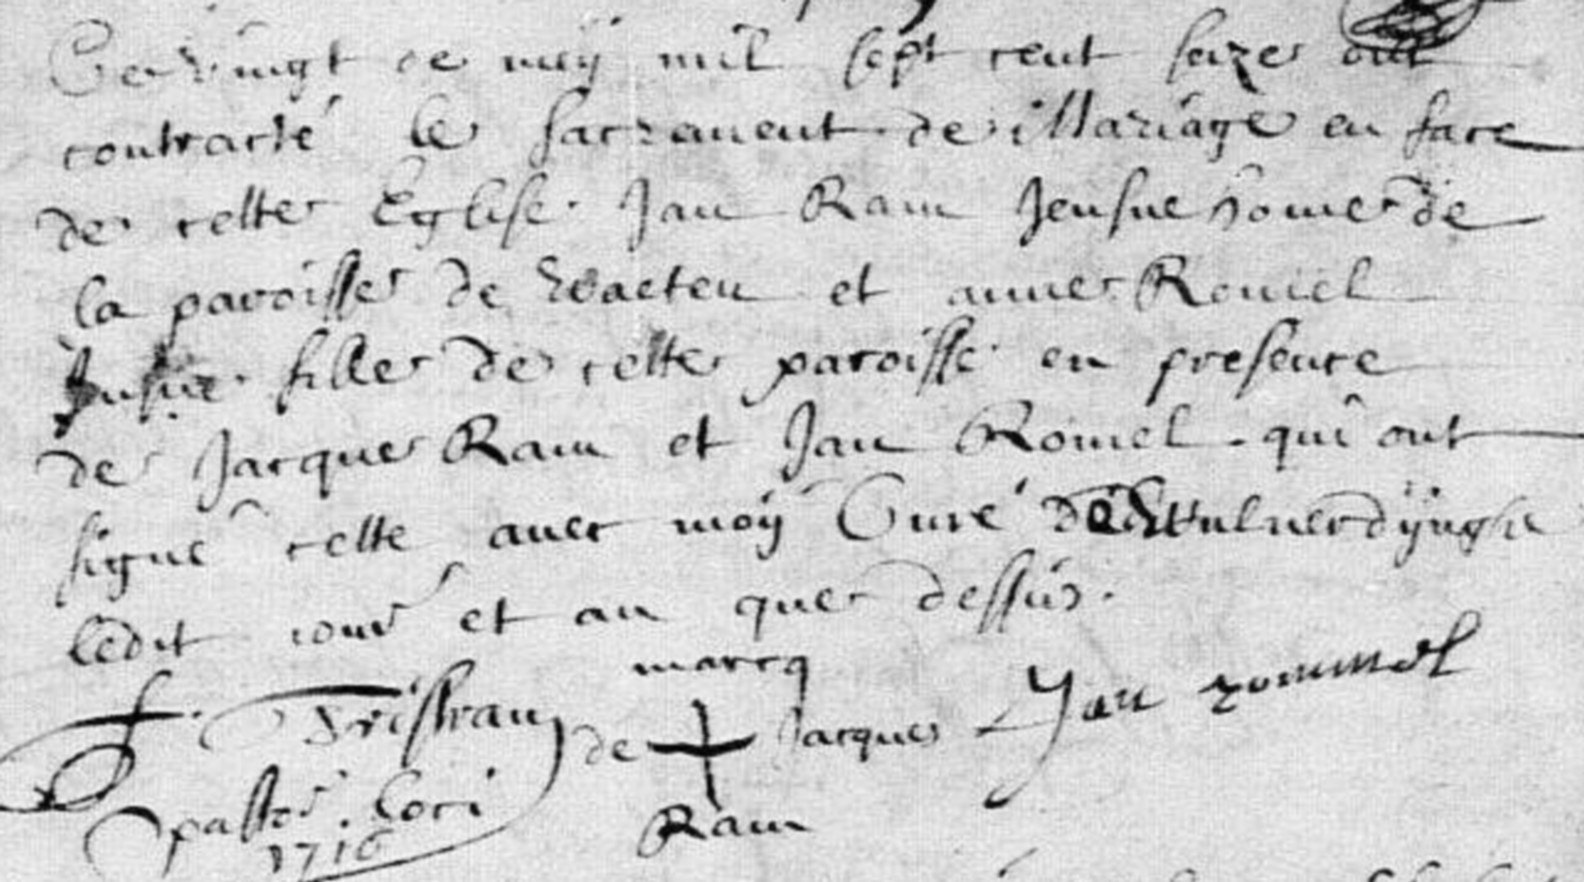 Ce vingt de may mil sept cent seize ont
contracté le sacrement de Mariage en face
de cette Eglise Jan Ram Jeusne homme de
la paroisse de Watten et anne Romel
Jeusne fille de cette paroisse en presence
de Jacque Ram et Jan Romel qui ont
signé cette avec moy Curé de Wulverdynghe
ledit jour et an que dessus.
marcq
f. Tristram de + Jacques Jan rommel
pastor loci Ram
1716